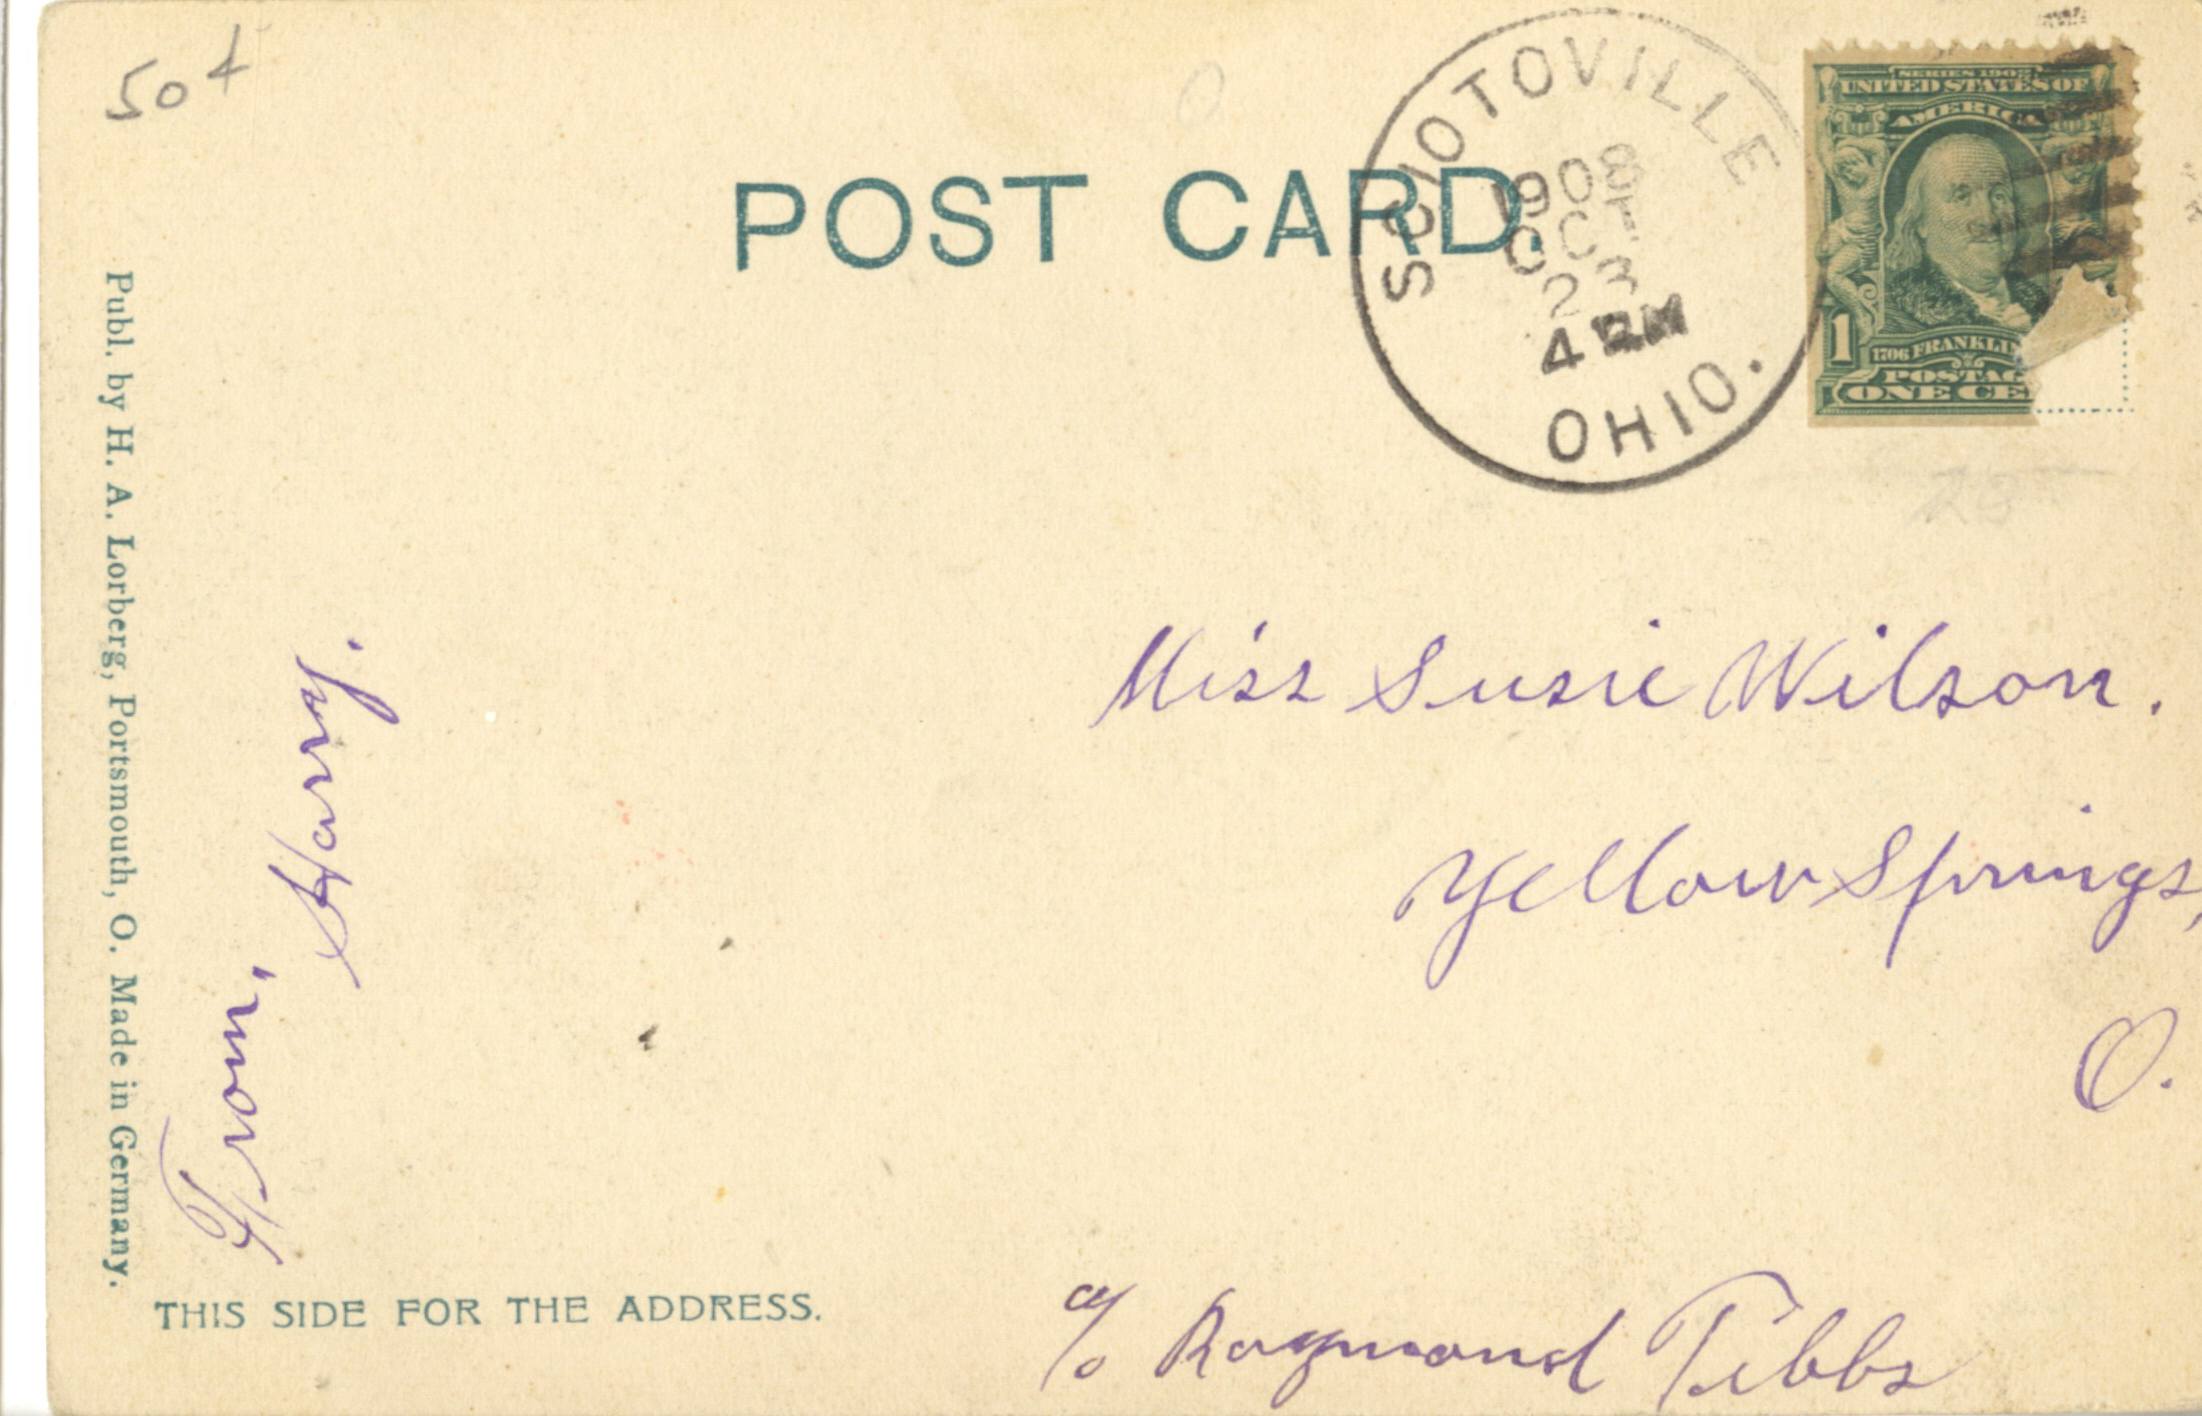 50¢
POST CARD.
SCIOTOVILLE
1908
OCT
23
4 PM
OHIO.
SERIES 1902
UNITED STATES OF
AMERICA
1
1706 FRANKLIN
POSTAG
ONE CE
Publ. by H. A. Lorberg, Portsmouth, O. Made in Germany.
From,
Harry.
Miss Susie Wilson.
Yellow Springs,
O.
c/o Raymond Tibbs
THIS SIDE FOR THE ADDRESS.